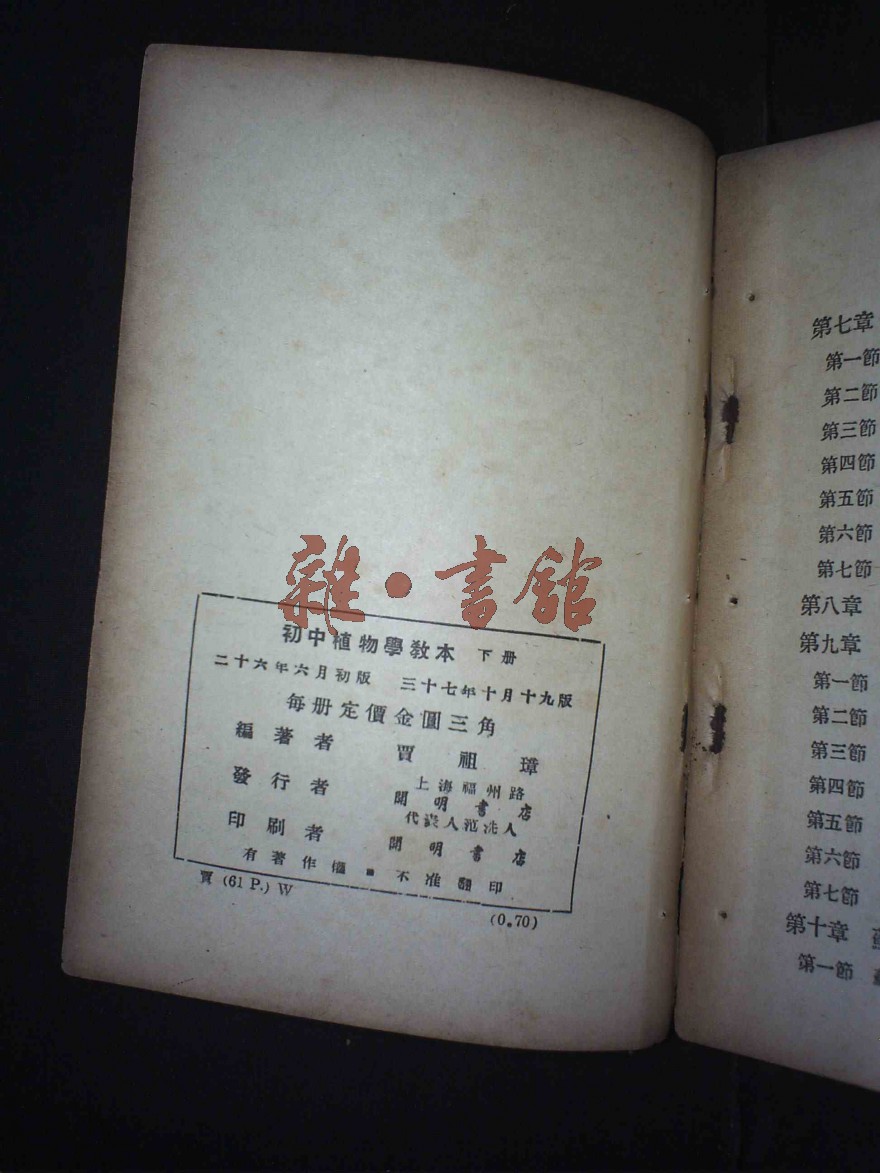 雜·書館
初中植物學教本 下册
二十六年六月初版 三十七年十月十九版
每册定價金圓三角
編著者 賈祖璋
發行者 上海福州路
開明書店
代表人范洗人
印刷者 開明書店
有著作權■不准翻印
賈 (61 P.) W
(0.70)
第七章
第一節
第二節
第三節
第四節
第五節
第六節
第七節
第八章
第九章
第一節
第二節
第三節
第四節
第五節
第六節
第七節
第十章
第一節